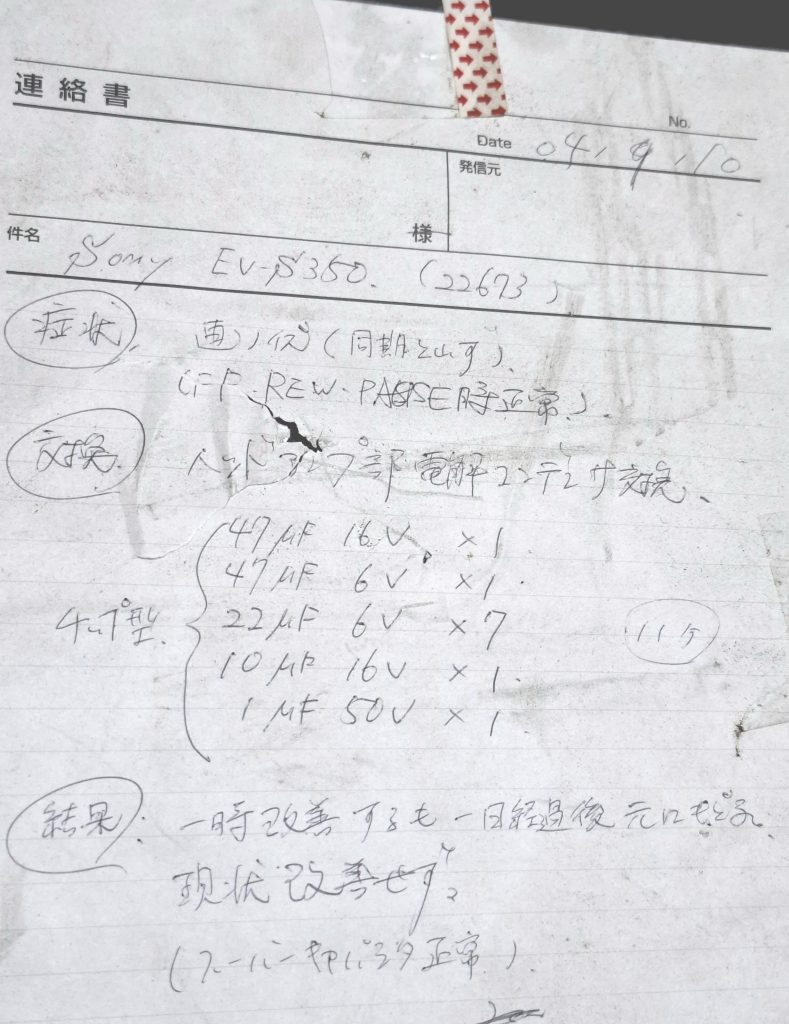 連絡書
No.
Date 04, 9, 10
発信元
様
件名 Sony EV-S350. (22673)
症状. 画ノイズ (同期と出ず).
(FF・REW・PAUSE時正常.)
交換. ヘッドアンプ部 電解コンデンサ交換、
47μF 16V. ×1
47μF 6V ×1.
チップ型. 22μF 6V ×7 11ケ
10μF 16V ×1.
1μF 50V ×1.
結果: 一時改善するも一日経過後元にもどる.
現状改善せず。
(スーパーキャパシタ正常.)